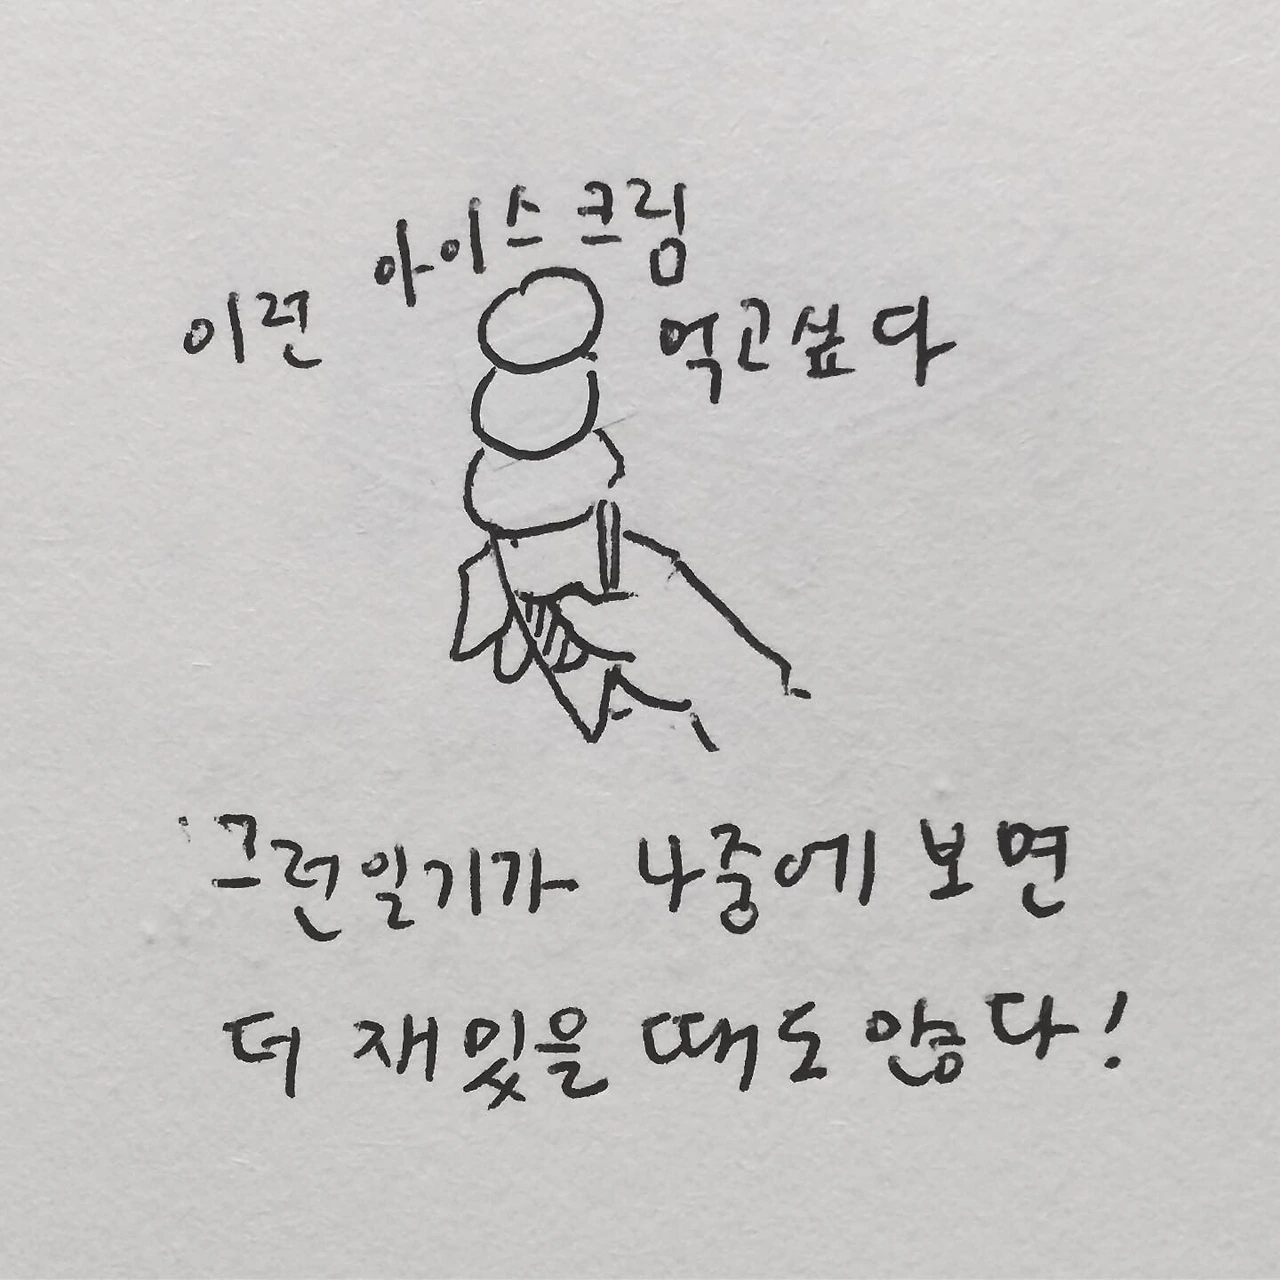 이런 아이스크림 먹고싶다
그런일기가 나중에 보면
더 재밌을 때도 않다!